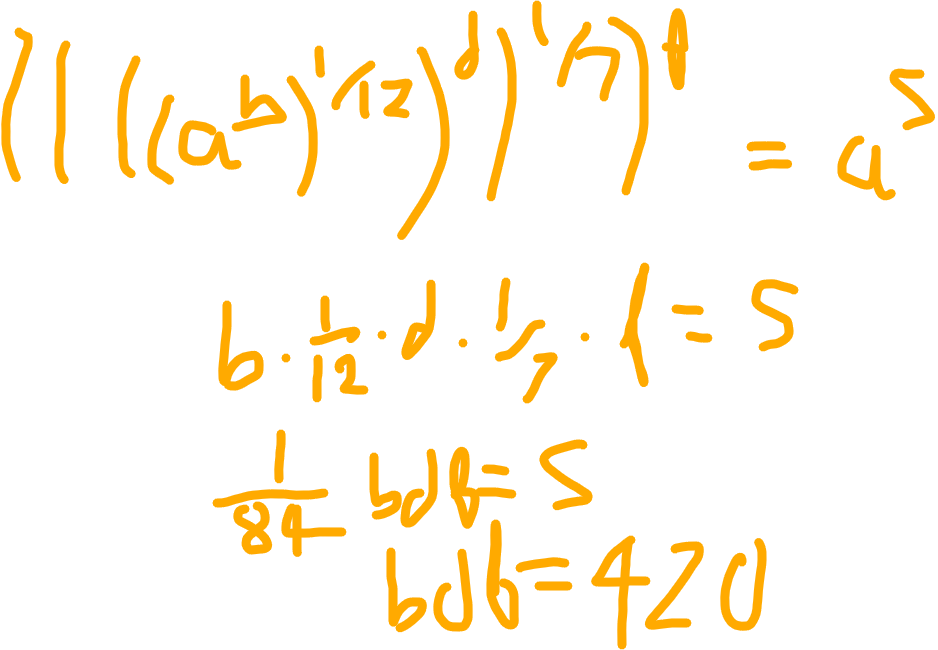 (((((a^b)^1/12)^d)^1/7)^f = a^5
b · 1/12 · d · 1/7 · f = 5
1/84 bdf = 5
bdf = 420